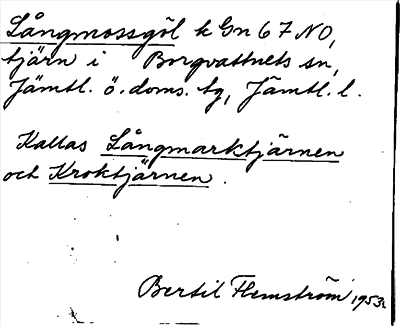 Långmossgöl k Gn 67 NO,
tjärn i Borgvattnets sn,
Jämtl. ö. doms. tg, Jämtl. l.
Kallas Långmarktjärnen
och Kroktjärnen.
Bertil Flemström 1953.